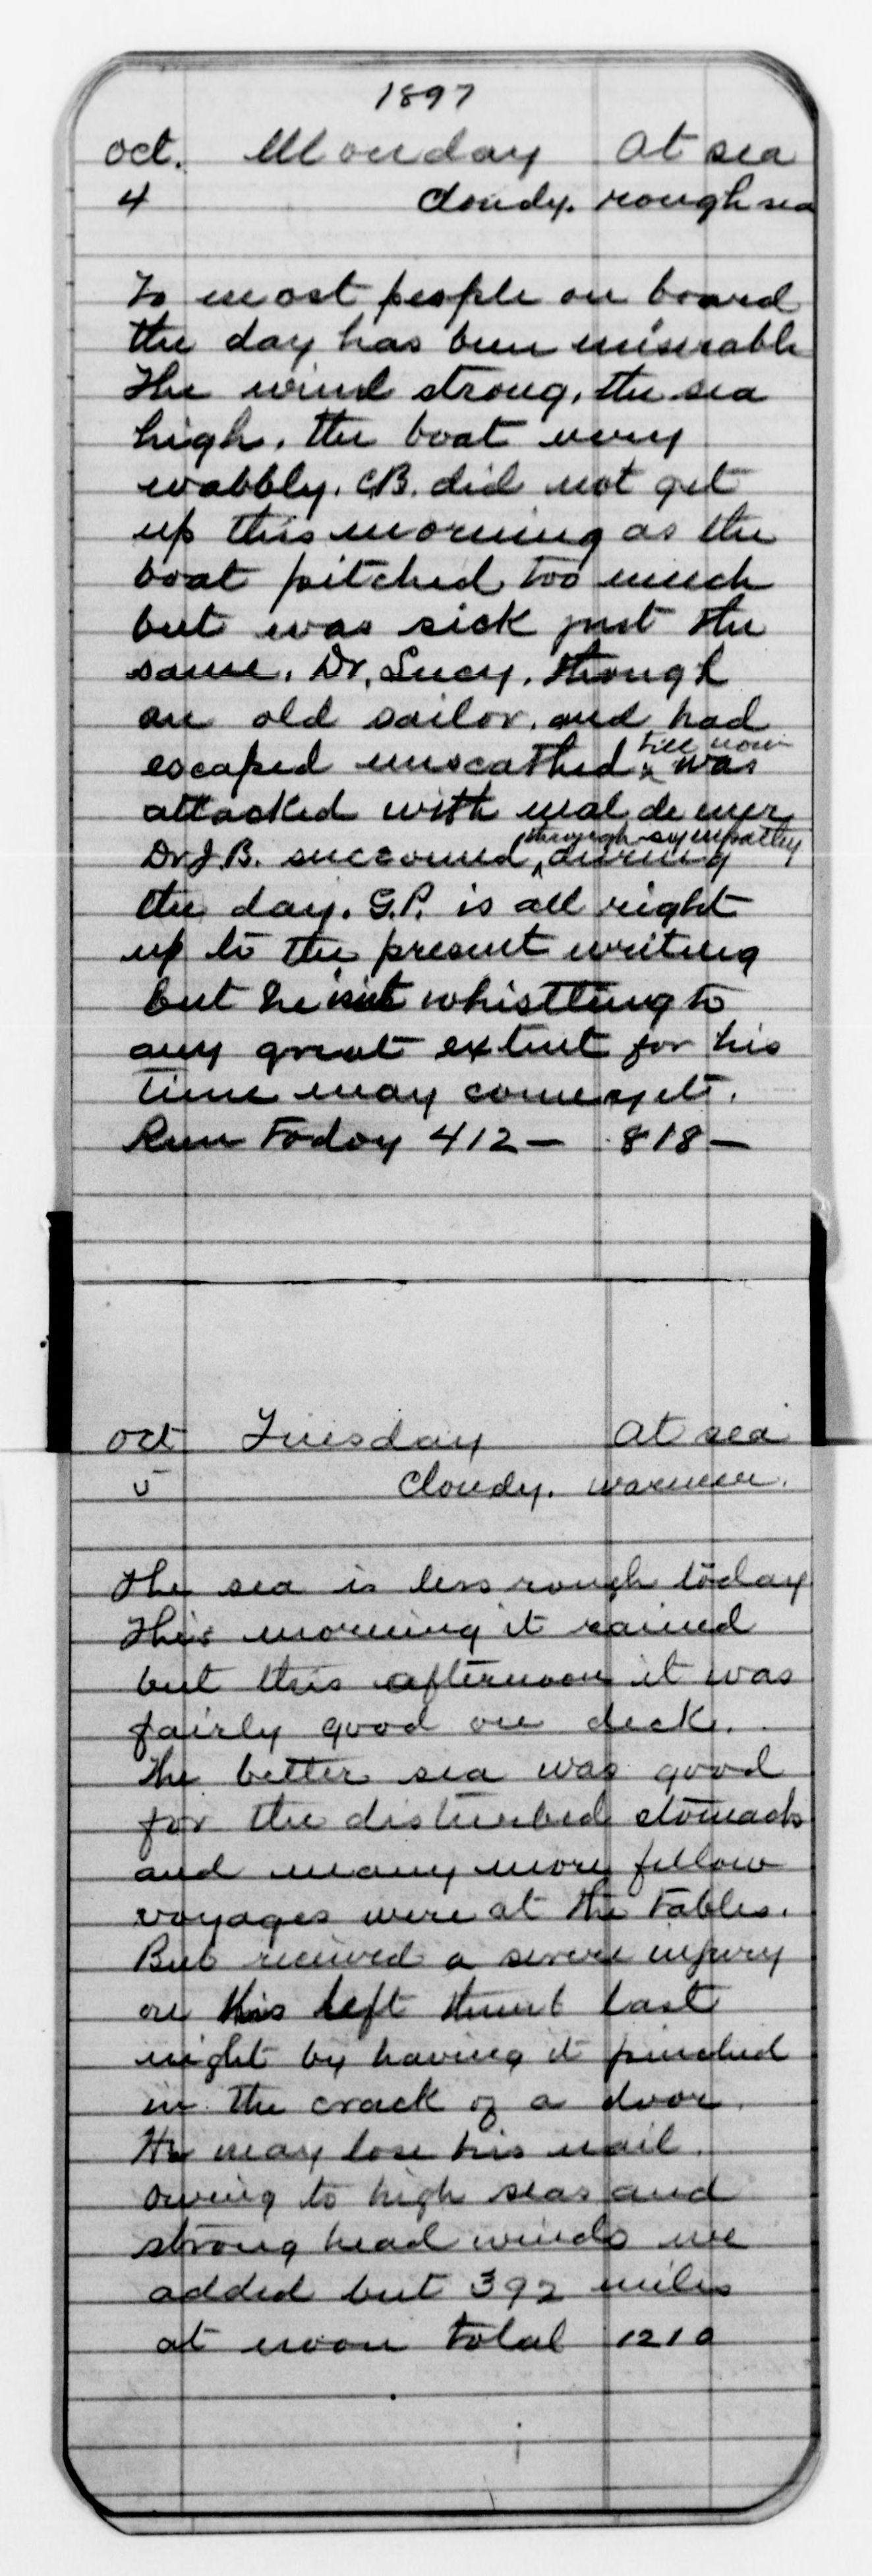 1897
Oct. Monday At sea
4 Cloudy. rough sea
To most people on board
the day has been miserable
The wind strong, the sea
high, the boat very
wabbly. C.B. did not get
up this morning as the
boat pitched too much
but was sick just the
same. Dr. Lucy, though
an old sailor, and had
till now
escaped unscathed x was
attacked with mal de mer
through sympathy
Dr J.B. succumed ^ during
the day. G.P. is all right
up to the present writing
but he isnt whistling to
any great extent for his
time may come yet.
Run Today 412 — 818 —
Oct Tuesday At sea
5 Cloudy. warmer.
The sea is less rough today
This morning it rained
but this afternoon it was
fairly good on deck.
The better sea was good
for the disturbed stomachs
and many more fellow
voyages were at the tables.
Bub received a severe injury
on his left thumb last
night by having it pinched
in the crack of a door.
He may lose his nail.
Owing to high seas and
strong head winds we
added but 392 miles
at noon total 1210